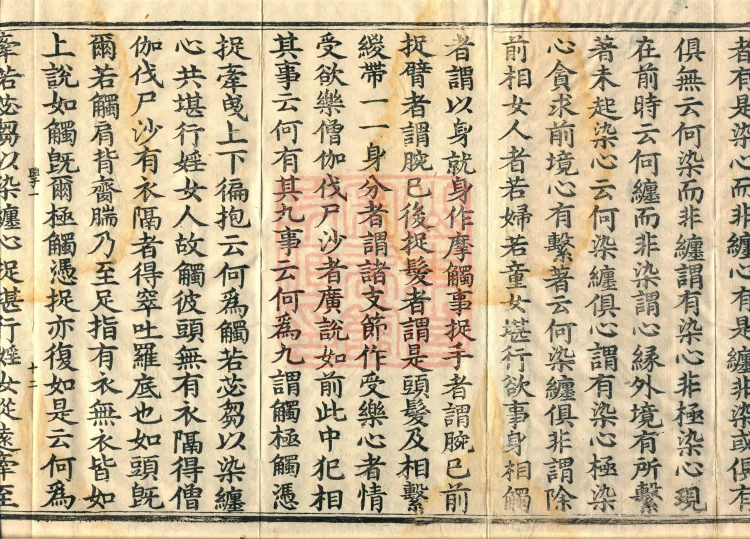 者有是染心而非纏心有是纏非染或俱有
俱無云何染而非纏謂有染心非極染心現
在前時云何纏而非染謂心緣外境有所繫
著未起染心云何染纏俱心謂有染心極染
心貪求前境心有繫著云何染纏俱非謂除
前相女人者若婦若童女堪行欲事身相觸
者謂以身就身作摩觸事捉手者謂腕已前
捉臂者謂腕已後捉髮者謂是頭髮及相繫
緩帶一一身分者謂諸支節作受樂心者情
受欲樂僧伽伐尸沙者廣說如前此中犯相
其事云何有其九事云何為九謂觸極觸憑
捉牽曳上下徧抱云何為觸若苾芻以染纏
心共堪行婬女人故觸彼頭無有衣隔得僧
伽伐尸沙有衣隔者得窣吐羅底也如頭旣
爾若觸肩背齎腨乃至足指有衣無衣皆如
上說如觸旣爾極觸憑捉亦復如是云何為
學一
十二
牽若苾芻以染纏心捉堪行婬女從遠牽至